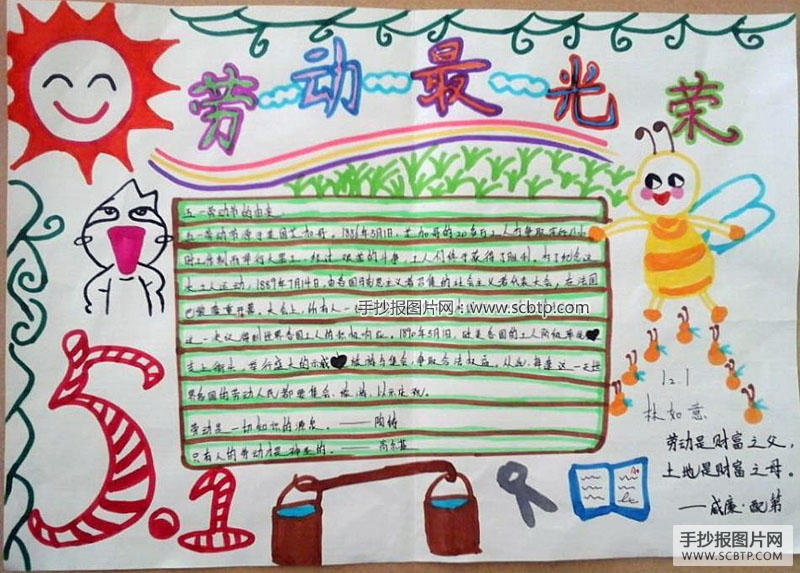 劳动最光荣
五一劳动节的由来
五一劳动节源于美国芝加哥,1886年5月1日,芝加哥的20多万工人为争取实行八小
时工作制而举行大罢工,经过艰苦的斗争,工人们终于获得了胜利,为了纪念这
次工人运动,1889年7月14日,由各国马克思主义者召集的社会主义者代表大会,在法国
巴黎隆重开幕。大会上,所有人一
这一决议得到世界各国工人的积极响应。1890年5月1日,欧美各国的工人阶级率先
走上街头,举行盛大的示威 游行与集会,争取合法权益。从此,每逢这一天世
界各国的劳动人民都要集会、游行,以示庆祝。
劳动是一切知识的源泉。——陶铸
只有人的劳动才是神圣的。——高尔基
手抄报图片网:www.scbtp.com
5.1
1.2.1
林如意
劳动是财富之父,
土地是财富之母。
——威廉·配第
A+
手抄报图片网
WWW.SCBTP.COM